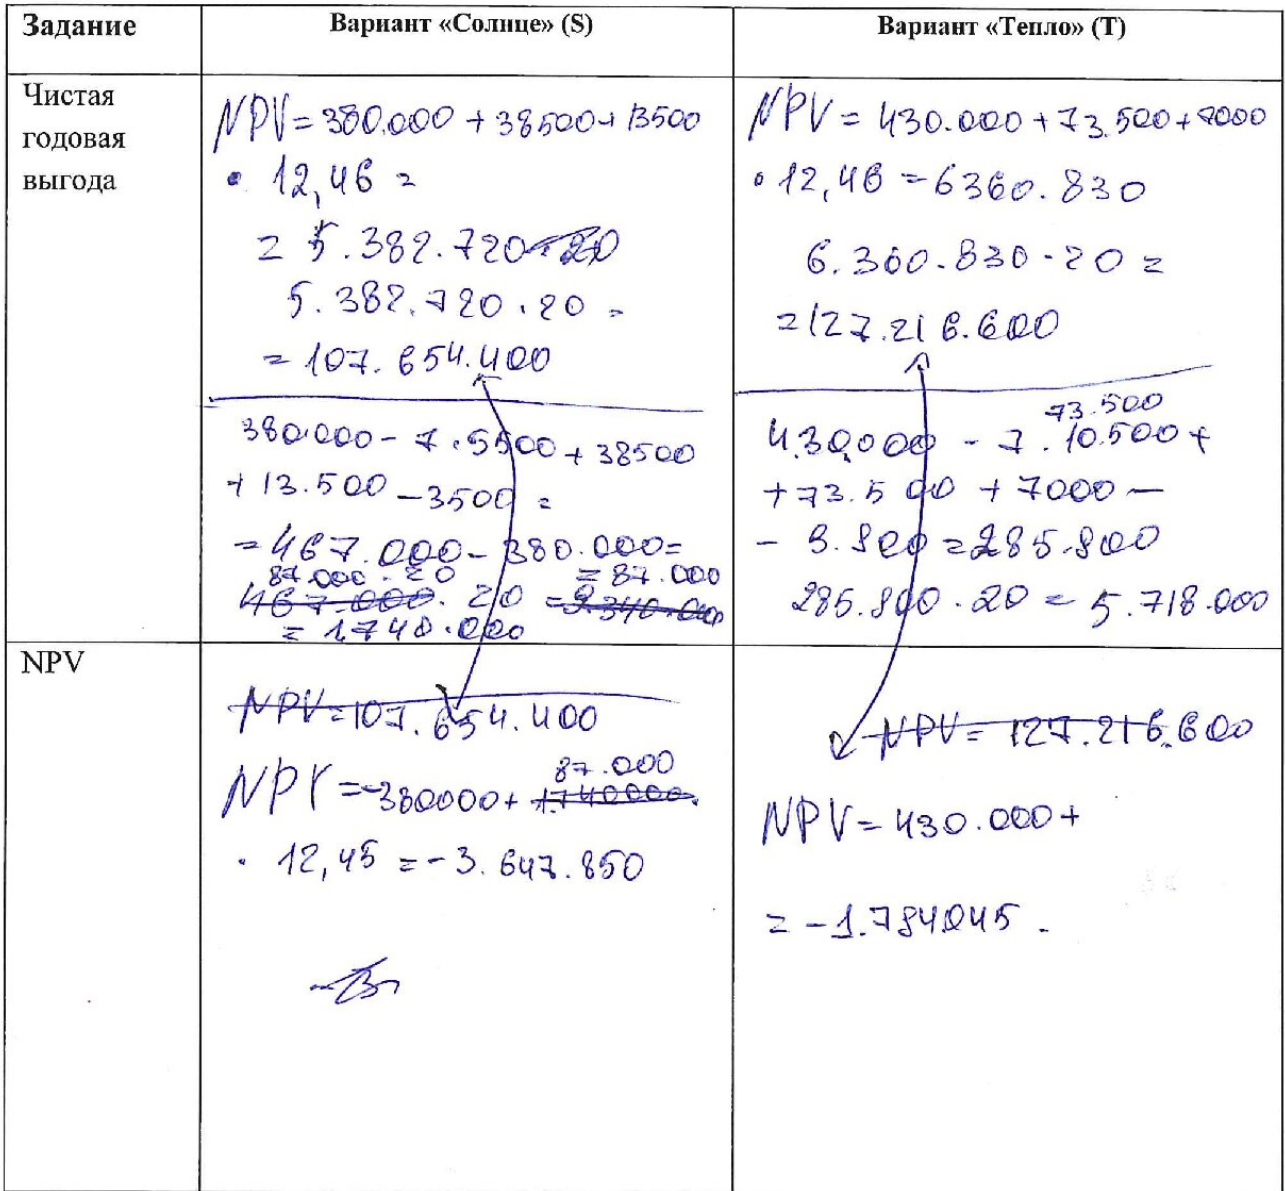 Задание
Вариант «Солнце» (S)
Вариант «Тепло» (T)
Чистая
годовая
выгода
NPV = 380.000 + 38500 + 13500
· 12,46 =
= 5.382.720 · 20
5.382.720 · 20 =
= 107.654.400
380.000 - 7.5500 + 38500
+ 13.500 - 3500 =
= 467.000 - 380.000 =
87.000 · 20 = 87.000
467.000 · 20 = 9.340.000
= 1.740.000
NPV = 430.000 + 73.500 + 7000
· 12,46 = 6360.830
6.360.830 · 20 =
= 127.216.600
73.500
430.000 - 7 · 10.500 +
+ 73.500 + 7000 -
= 285.800
285.800 · 20 = 5.718.000
NPV
NPV = 107.654.400
87.000
NPV = -380000 + 1.740000.
· 12,45 = -3.647.850
NPV = 127.216.600
NPV = 430.000 +
= -1.784045.